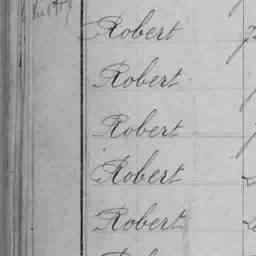 Robert
Robert
Robert
Robert
Robert